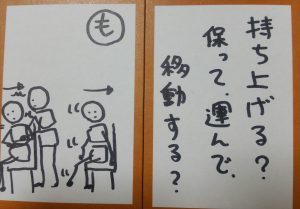 も
持ち上げる？
保って、運んで、
移動する？